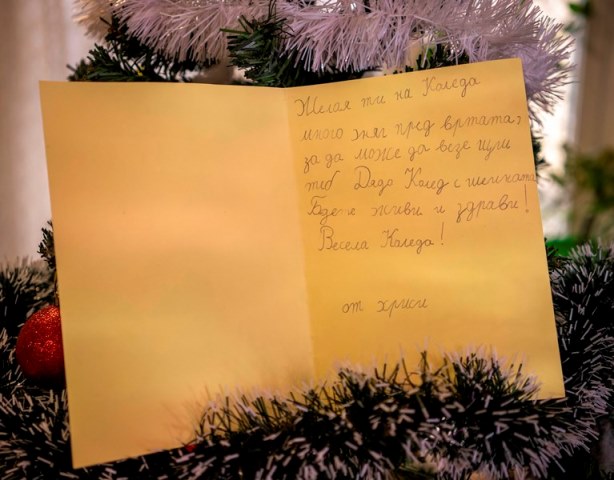 Желая ти на Коледа
много сняг пред вртата,
за да може да везе при
теб Дядо Колед с шейната.
Бдете живи и здрави!
Весела Коледа!
от Хриси